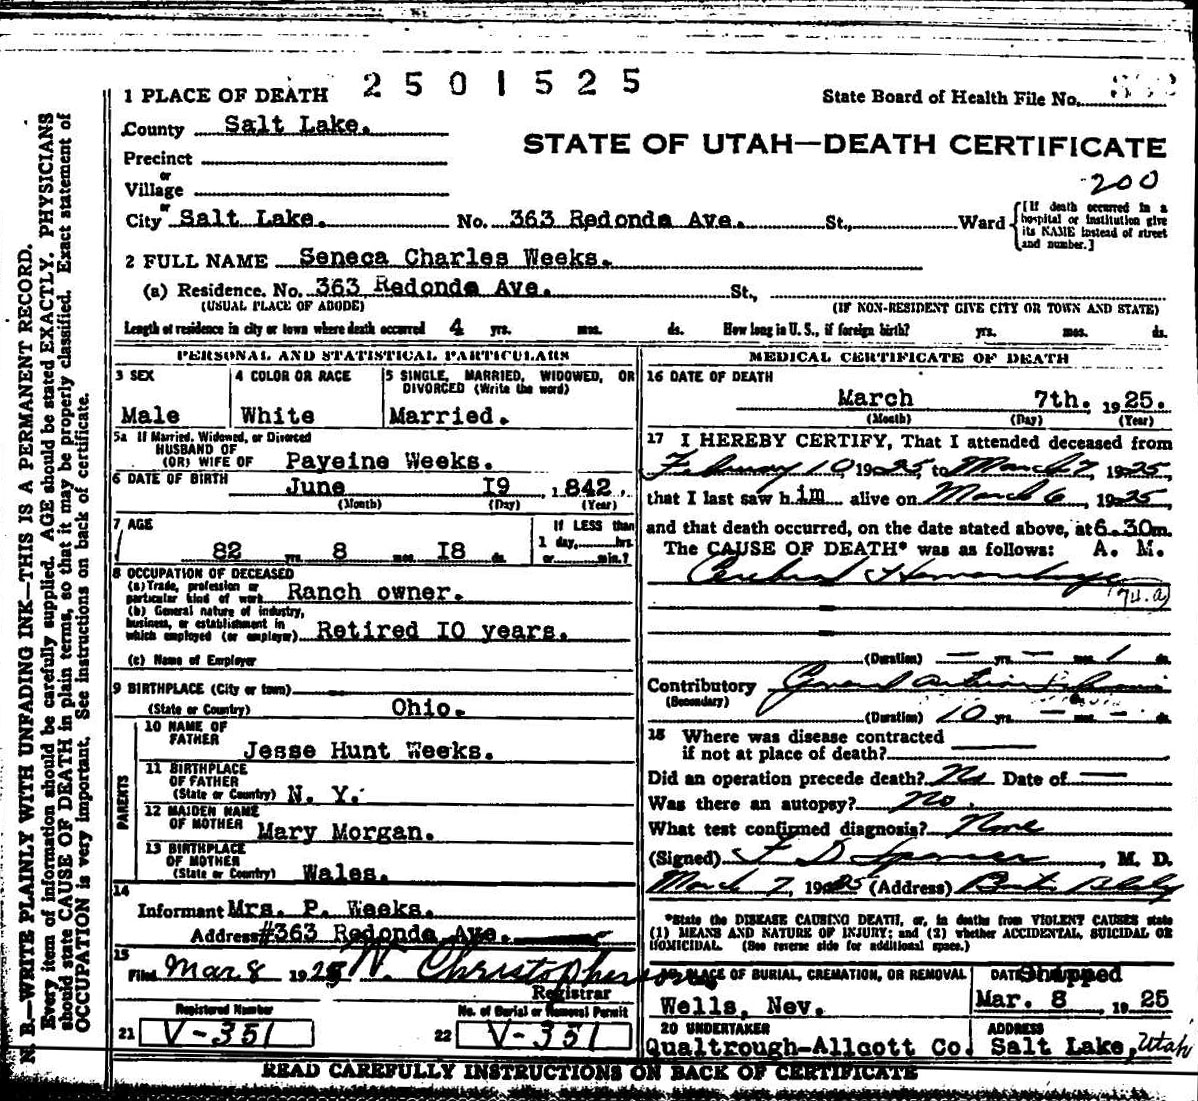 2501525
1 PLACE OF DEATH
State Board of Health File No.
County Salt Lake.
STATE OF UTAH—DEATH CERTIFICATE
Precinct
or
Village
200
or
City Salt Lake. No. 363 Redonda Ave. St., Ward
[If death occurred in a hospital or institution give its NAME instead of street and number.]
2 FULL NAME Seneca Charles Weeks.
(a) Residence. No. 363 Redonda Ave. St.,
(USUAL PLACE OF ABODE) (IF NON-RESIDENT GIVE CITY OR TOWN AND STATE)
Length of residence in city or town where death occurred 4 yrs. mos. ds. How long in U. S., if foreign birth? yrs. mos. ds.
PERSONAL AND STATISTICAL PARTICULARS
3 SEX
Male
4 COLOR OR RACE
White
5 SINGLE, MARRIED, WIDOWED, OR
DIVORCED (Write the word)
Married.
5a If Married, Widowed, or Divorced
HUSBAND OF
(OR) WIFE OF Payeine Weeks.
6 DATE OF BIRTH June I9 1842.
(Month) (Day) (Year)
7 AGE
82 yrs. 8 mos. I8 ds.
If LESS than
1 day, hrs.
or min.?
8 OCCUPATION OF DECEASED
(a) Trade, profession or
particular kind of work Ranch owner.
(b) General nature of industry,
business, or establishment in
which employed (or employer) Retired IO years.
(c) Name of Employer
9 BIRTHPLACE (City or town)
(State or Country) Ohio.
PARENTS
10 NAME OF
FATHER Jesse Hunt Weeks.
11 BIRTHPLACE
OF FATHER
(State or Country) N. Y.
12 MAIDEN NAME
OF MOTHER Mary Morgan.
13 BIRTHPLACE
OF MOTHER
(State or Country) Wales.
14
Informant Mrs. P. Weeks.
Address #363 Redonda Ave.
15
Filed Mar 8 1925 N. Christopherson
Registrar
Registered Number
21 V-351
No. of Burial or Removal Permit
22 V-351
MEDICAL CERTIFICATE OF DEATH
16 DATE OF DEATH
March 7th. 1925.
(Month) (Day) (Year)
17 I HEREBY CERTIFY, That I attended deceased from
February 10 1925 to March 7, 1925
that I last saw him alive on March 6, 1925,
and that death occurred, on the date stated above, at 6.30m.
The CAUSE OF DEATH* was as follows: A. M.
Cerebral Hemorrhage
74.a)
(Duration) — yrs. — mos. 1 ds.
Contributory General
(Secondary)
(Duration) 10 yrs. — mos. — ds.
18 Where was disease contracted
if not at place of death?
Did an operation precede death? No Date of —
Was there an autopsy? No.
What test confirmed diagnosis? None
(Signed) F D Spencer, M. D.
March 7, 1925 (Address)
*State the DISEASE CAUSING DEATH, or, in deaths from VIOLENT CAUSES state
(1) MEANS AND NATURE OF INJURY; and (2) whether ACCIDENTAL, SUICIDAL OR
HOMICIDAL. (See reverse side for additional space.)
PLACE OF BURIAL, CREMATION, OR REMOVAL
Wells, Nev.
DATE Shipped
Mar. 8 1925
20 UNDERTAKER
Qualtrough-Allcott Co.
ADDRESS
Salt Lake, Utah
READ CAREFULLY INSTRUCTIONS ON BACK OF CERTIFICATE
N. B.—WRITE PLAINLY WITH UNFADING INK—THIS IS A PERMANENT RECORD.
Every item of information should be carefully supplied. AGE should be stated EXACTLY. PHYSICIANS
should state CAUSE OF DEATH in plain terms, so that it may be properly classified. Exact statement of
OCCUPATION is very important. See instructions on back of certificate.